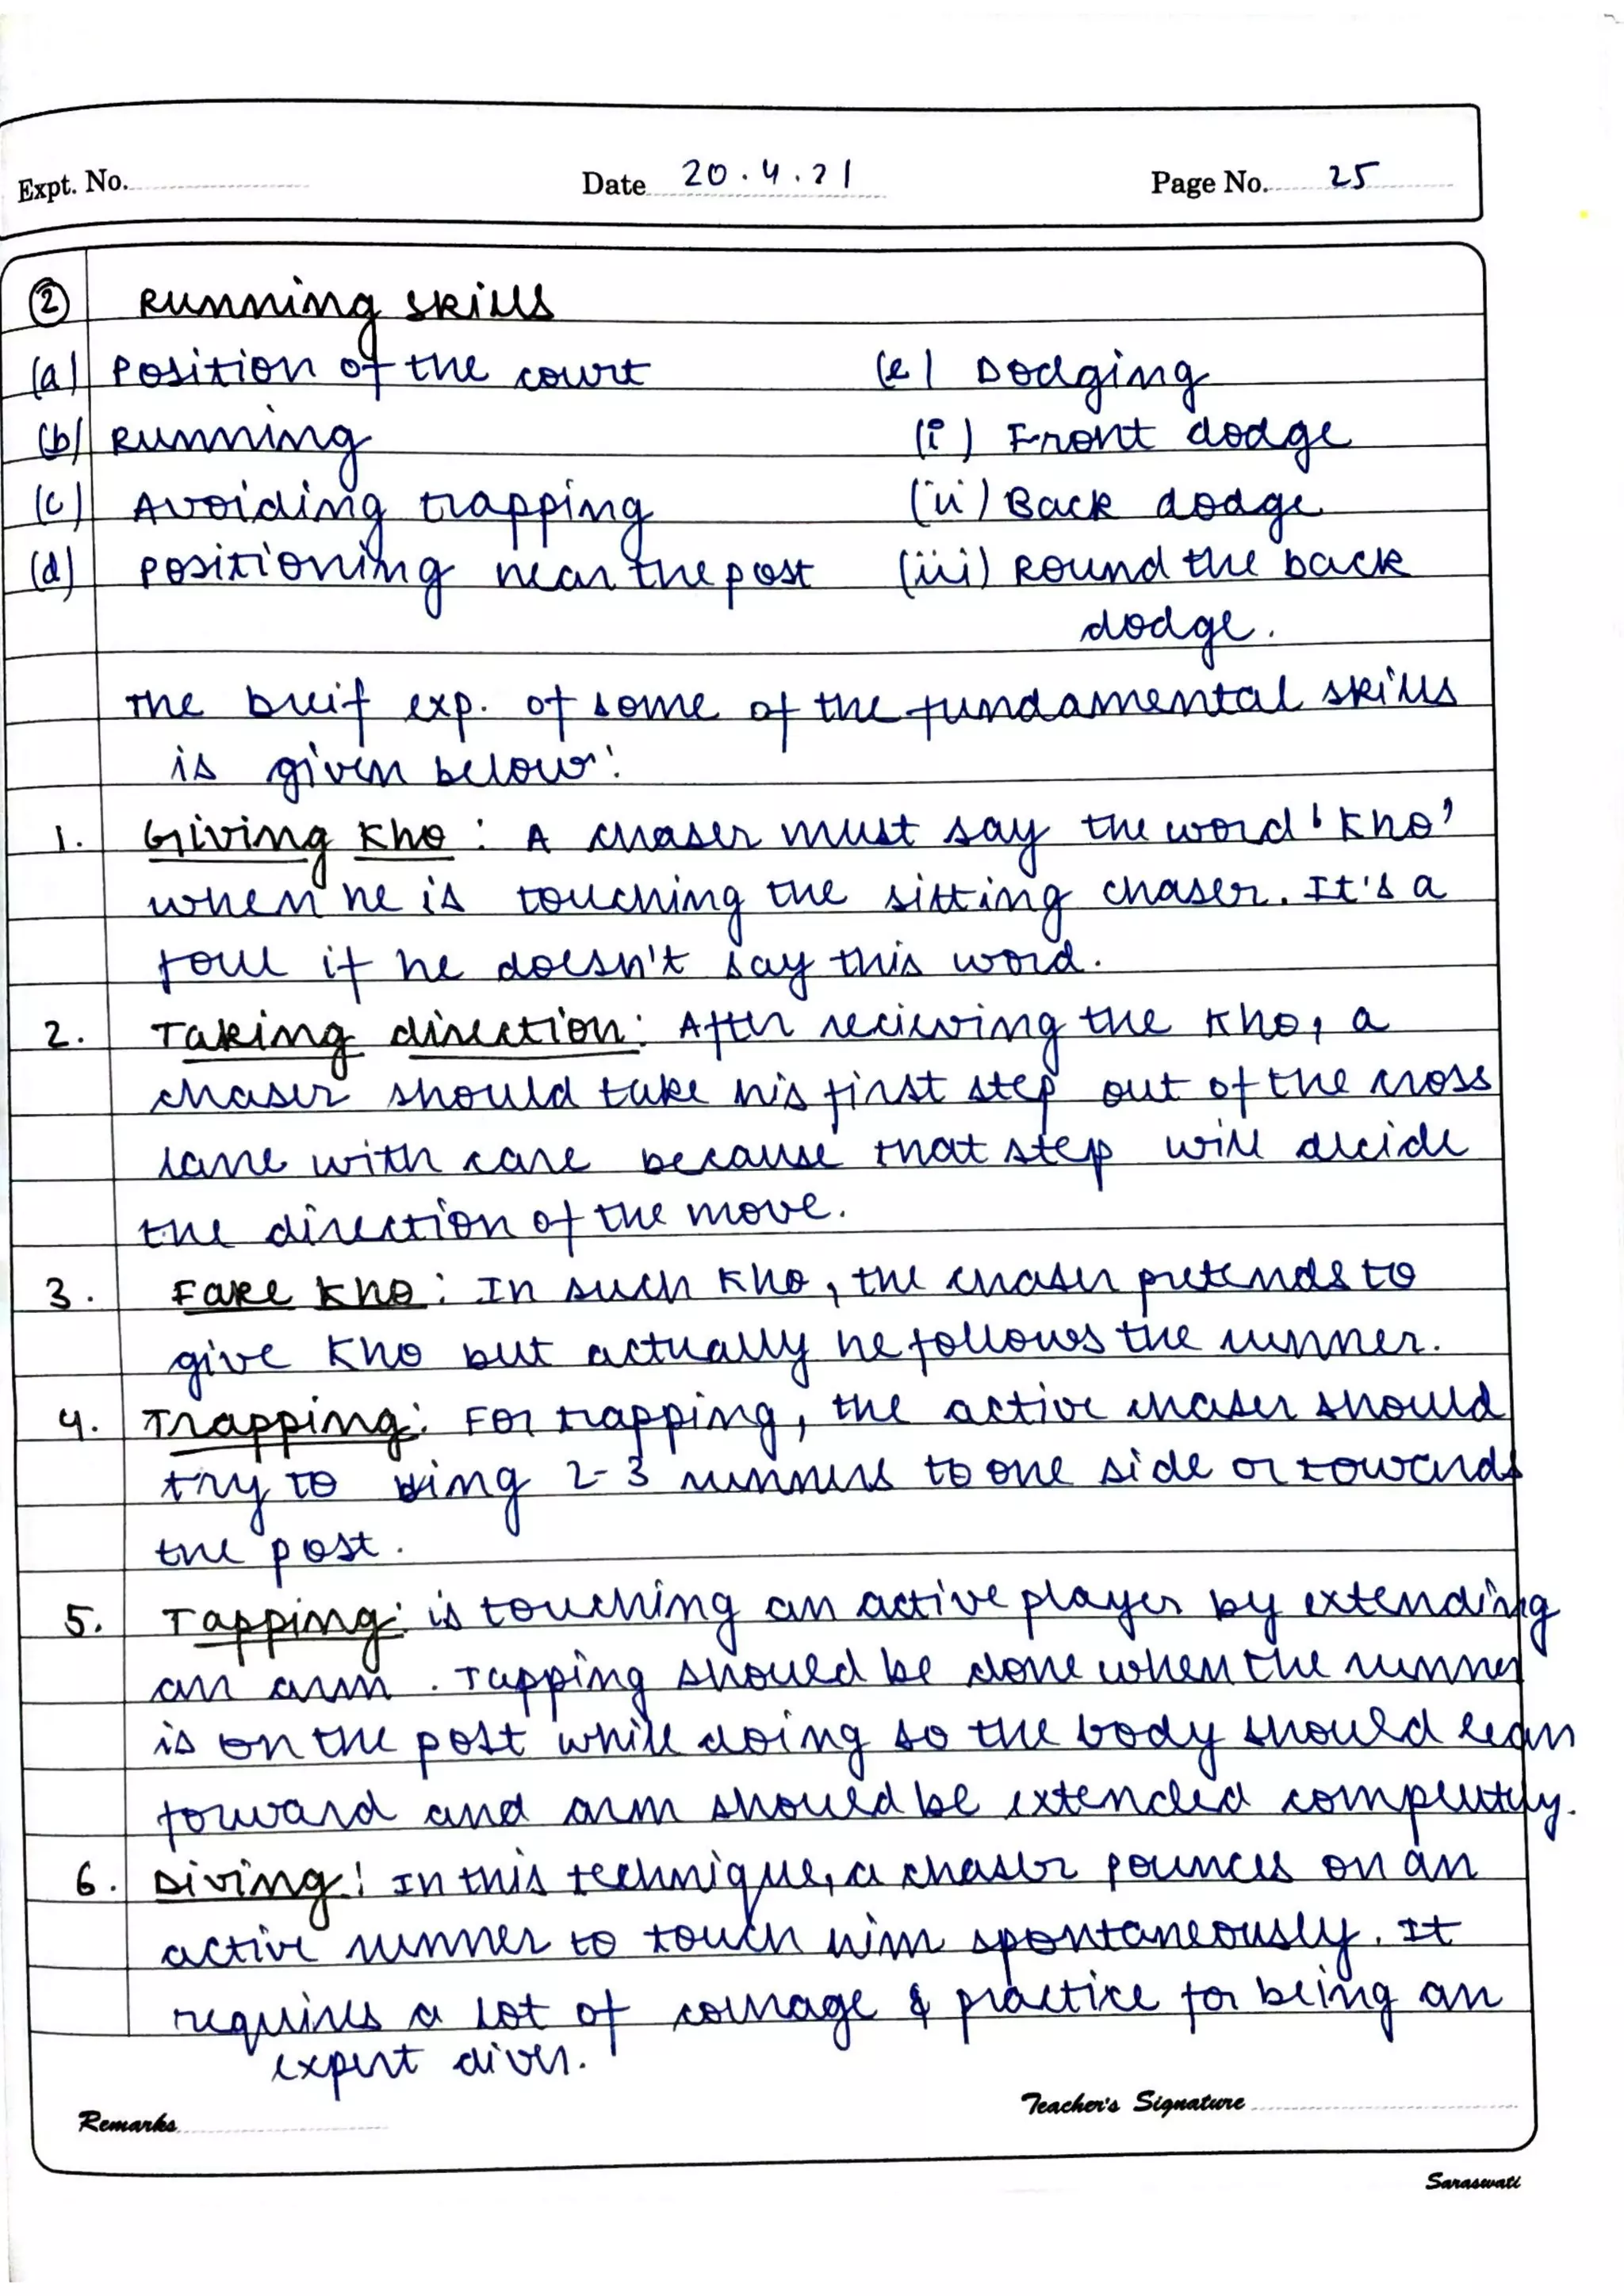 Expt. No. Date 20.4.21 Page No. 25
② Running skills
(a) Position of the court (e) Dodging
(b) Running (i) Front dodge
(c) Avoiding trapping (ii) Back dodge
(d) positioning near the post (iii) Round the back
dodge.
The breif exp. of some of the fundamental skills
is given below:
1. Giving Kho : A chaser must say the word 'Kho'
when he is touching the sitting chaser. It's a
foul if he doesn't say this word.
2. Taking direction: After recieving the Kho, a
chaser should take his first step out of the cross
lane with care because that step will decide
the direction of the move.
3. Fake Kho : In such Kho, the chaser pretends to
give Kho but actually he follows the runner.
4. Trapping: For trapping, the active chaser should
try to bring 2-3 runners to one side or towards
the post.
5. Tapping: is touching an active player by extending
an arm. Tapping should be done when the runner
is on the post while doing so the body should lean
forward and arm should be extended completely.
6. Diving: In this technique, a chaser pounces on an
active runner to touch him spontaneously. It
requires a lot of courage & practice for being an
expert diver.
Teacher's Signature
Remarks
Saraswati